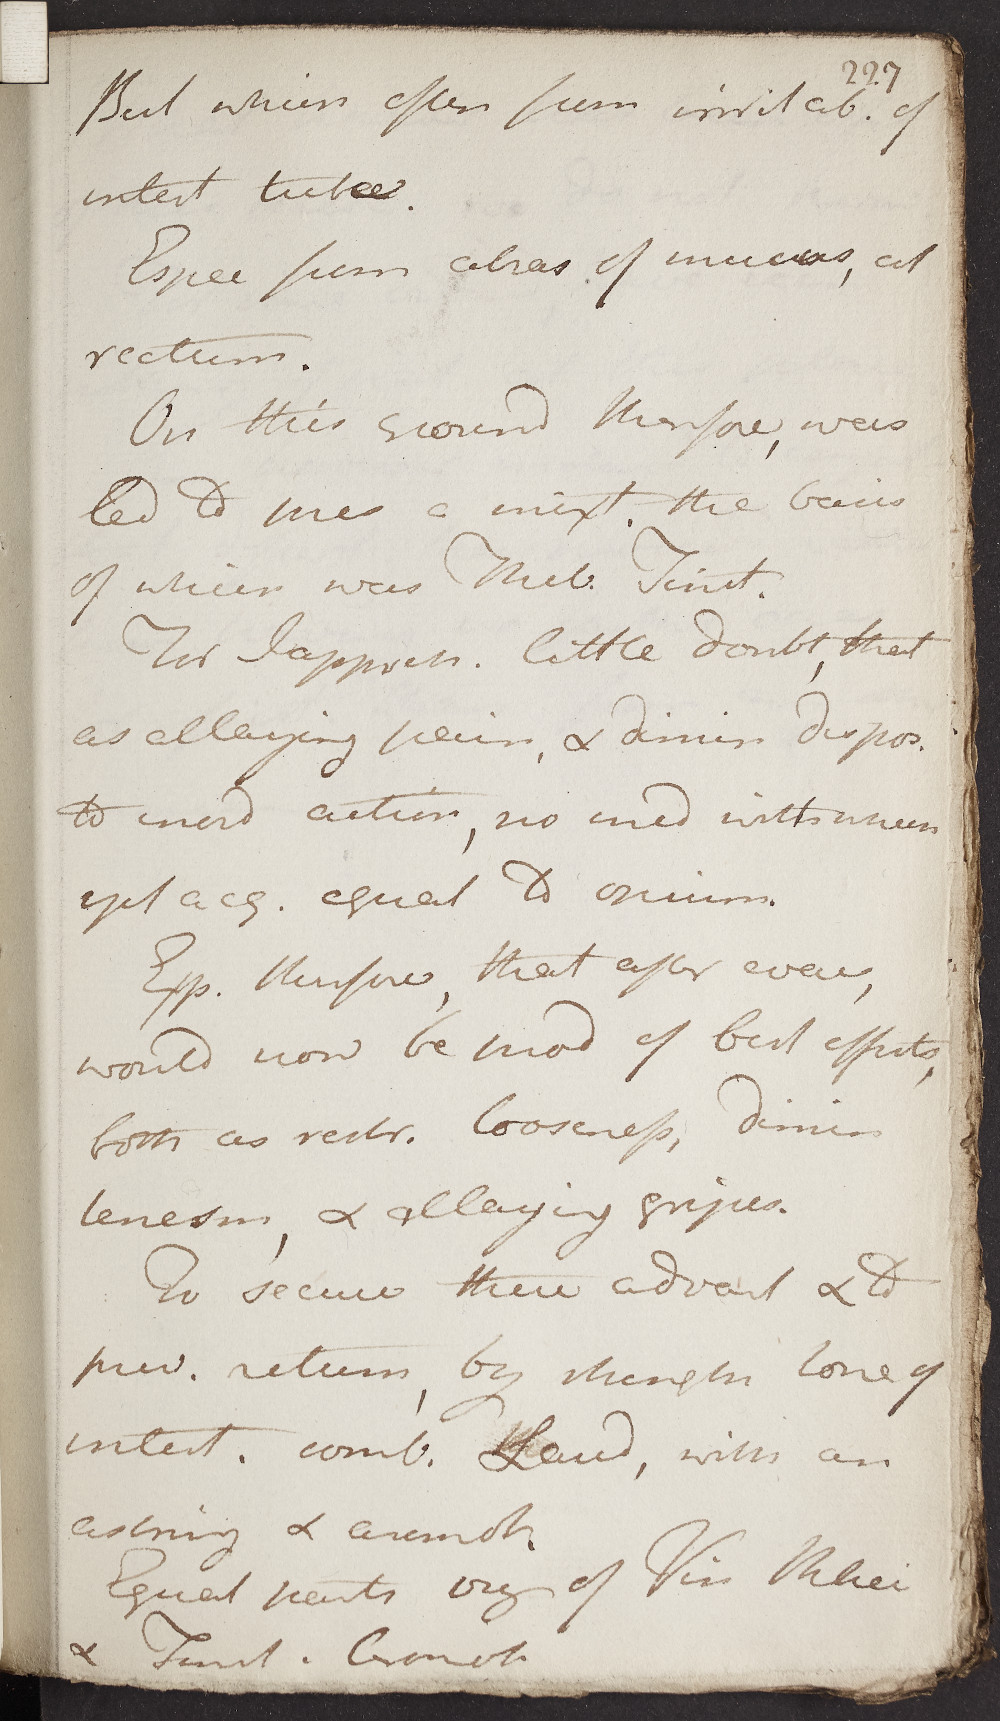 227
But which often from irritab. of
intest tube.
Espec from abras of mucus, at
rectum.
On this ground therefore, was
led to pres a mixt. the basis
of which was Theb. Tinct.
For I appreh. little doubt, that
as allaying pain, & dimin dispos.
to inord action, no med with which
yet acq. equal to opium.
Exp. therefore, that after evac,
would now be prod of best effects,
both as restr. looseness, dimin
tenesm, & allaying gripes.
To secure these advant & to
prev. return, by strength tone of
intest. comb. Laud, with an
astring & aromat.
Equal parts viz of Vin Rhei
& Tinct. Aromat